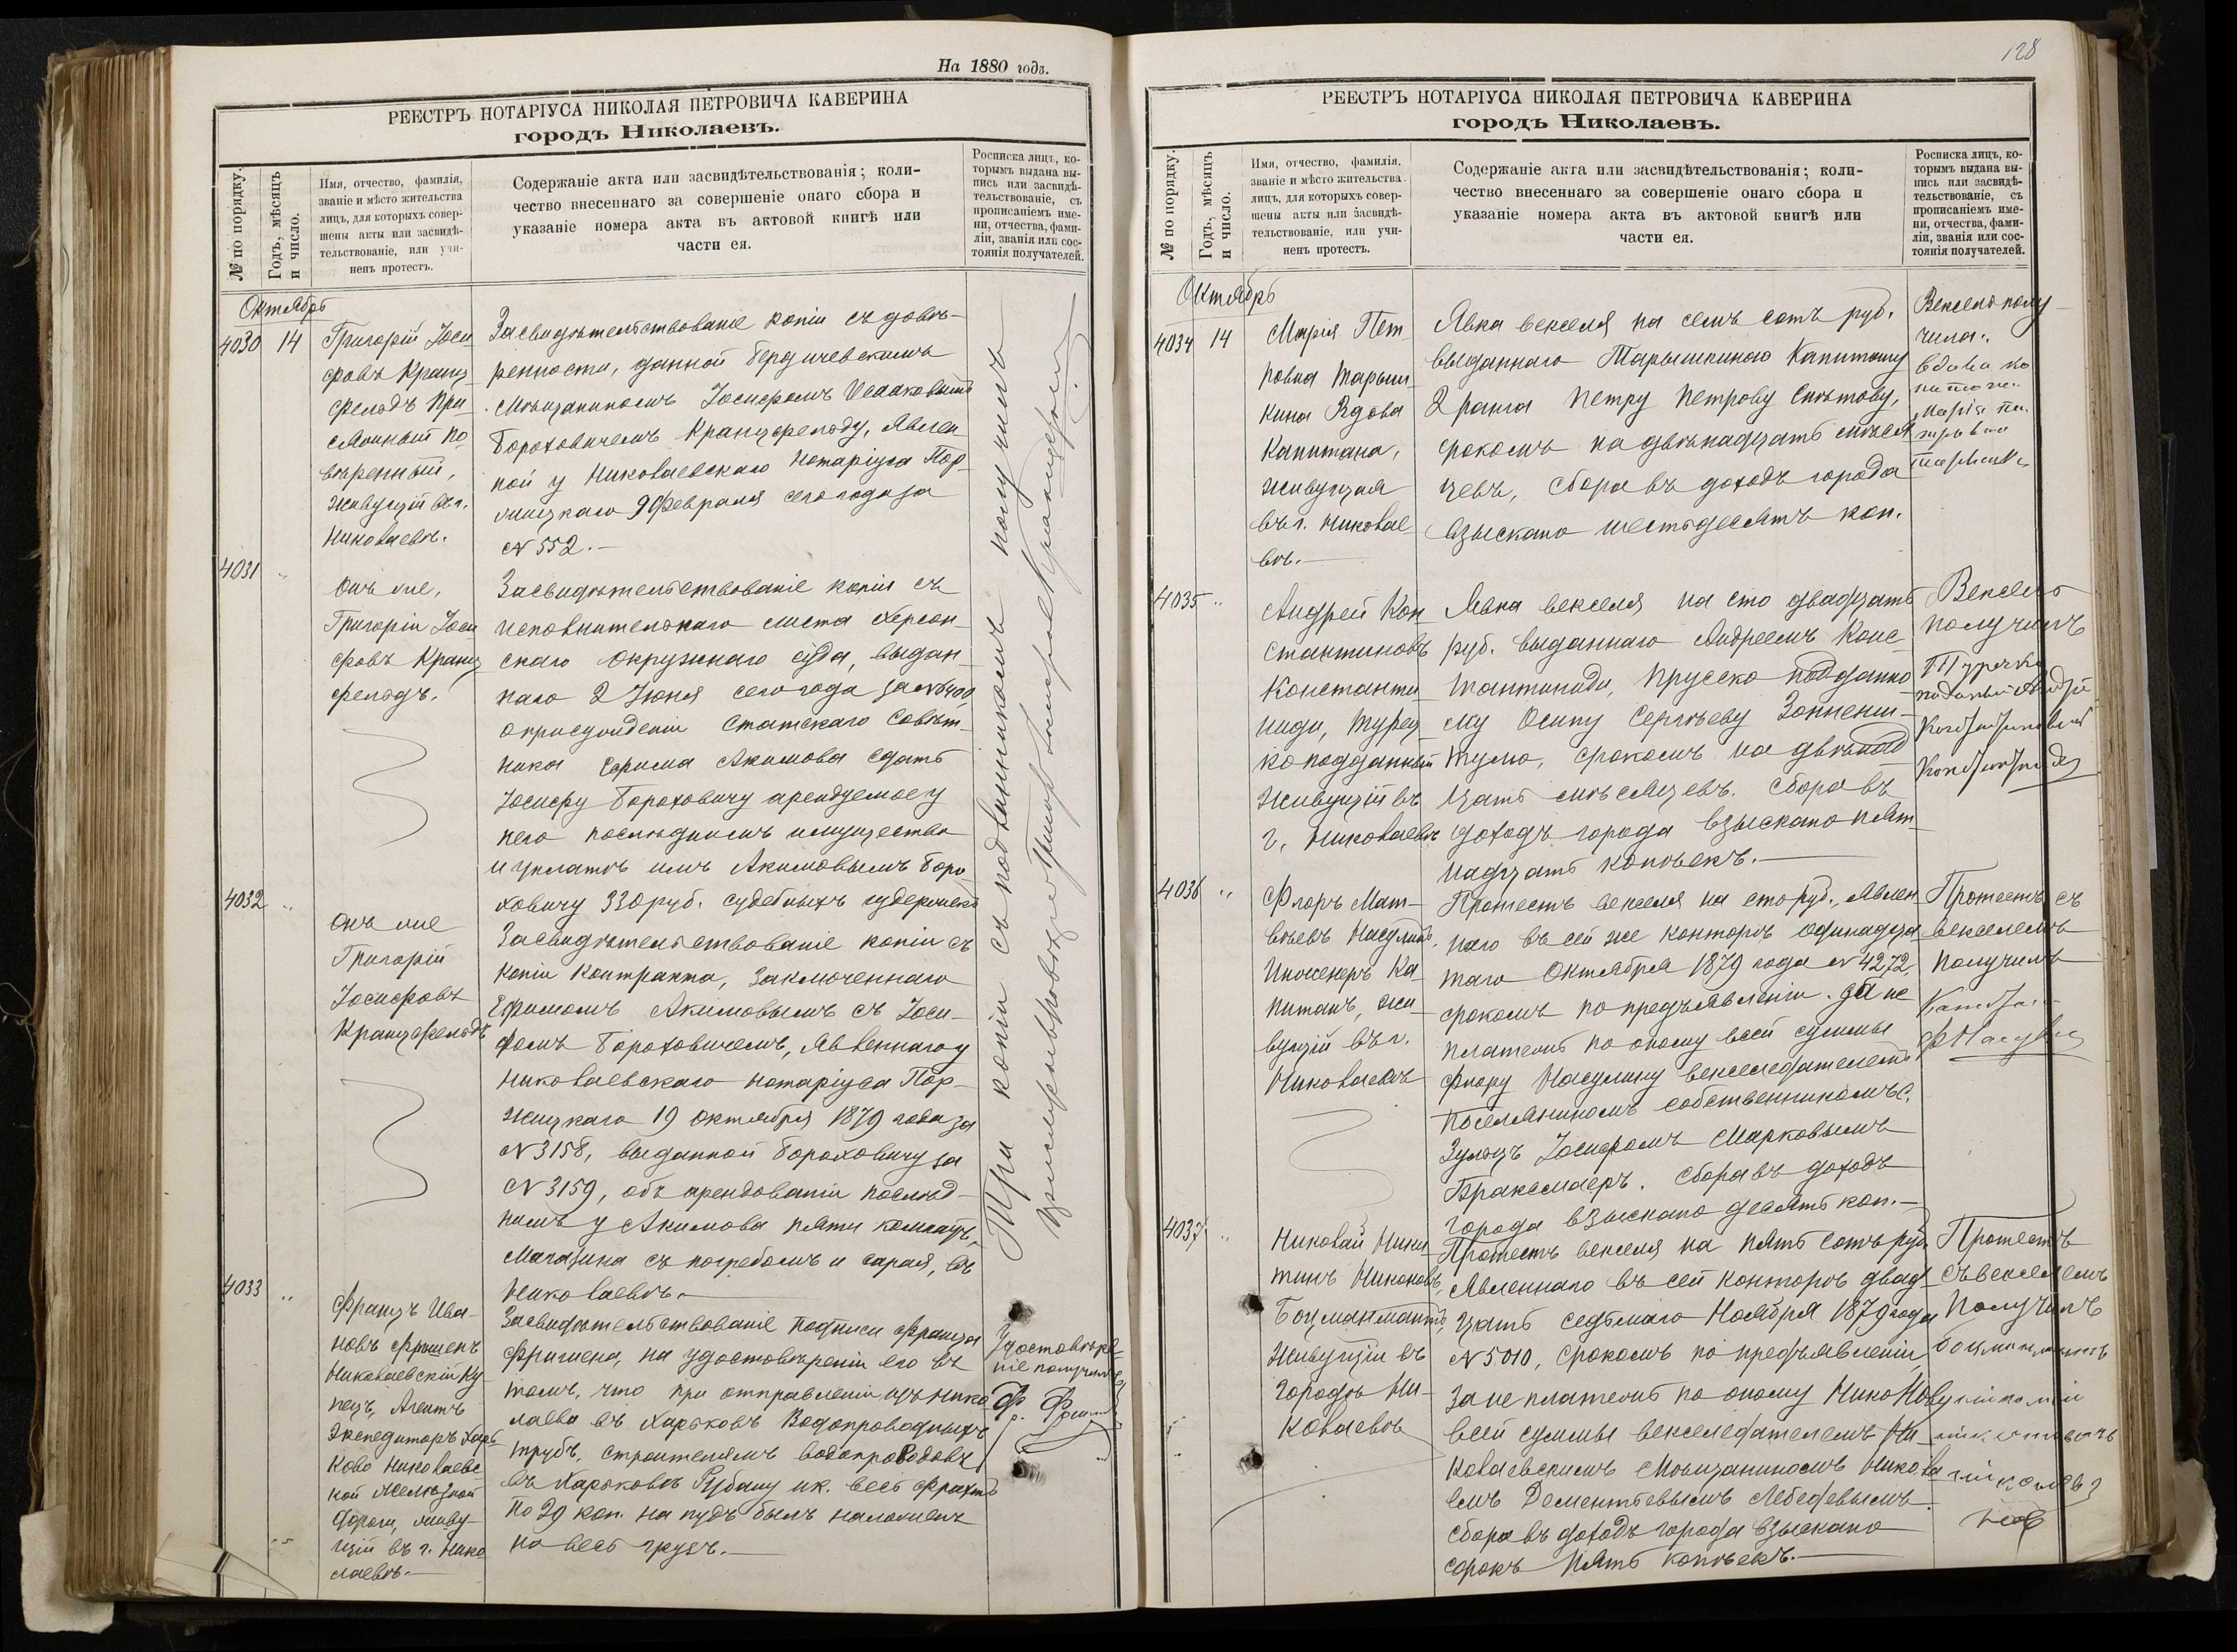 На 1880 годъ.
РЕЕСТРЪ НОТАРІУСА НИКОЛАЯ ПЕТРОВИЧА КАВЕРИНА
городъ Николаевъ.
№ по порядку.
Годъ, мѣсяцъ
и число.
Имя, отчество, фамилія,
званіе и мѣсто жительства
лицъ, для которыхъ совер-
шены акты или засвидѣ-
тельствованіе, или учи-
ненъ протестъ.
Содержаніе акта или засвидѣтельствованія; коли-
чество внесеннаго за совершеніе онаго сбора и
указаніе номера акта въ актовой книгѣ или
части ея.
Росписка лицъ, ко-
торымъ выдана вы-
пись или засвидѣ-
тельствованіе, съ
прописаніемъ име-
ни, отчества, фами-
ліи, званія или сос-
тоянія получателей.
Октябрь
4030 14
Григорій Іоси
фовъ Кранц
фельдъ При
сяжный по
вѣренный,
живущій въ г.
Николаевѣ.
Засвидѣтельствованіе копіи съ довѣ-
ренности, данной Бердичевскимъ
Мѣщаниномъ Іосифомъ Исааковымъ
Бороховичемъ Кранцфельду, явлен-
ной у Николаевскаго Нотаріуса Пор-
жицкаго 9 Февраля сего года за
№ 552.—
4031 "
Онъ же,
Григорій Іоси
фовъ Кранц
фельдъ.
Засвидѣтельствованіе копіи съ
исполнительнаго листа Херсон-
скаго Окружнаго Суда, выдан-
наго 2 Іюня сего года за № 6400
о присужденіи Статскаго Совѣт-
ника Ефима Акимова сдать
Іосифу Бороховичу арендуемое у
него послѣднимъ имущество
и уплатѣ имъ Акимовымъ Боро
ховичу 330 руб. судебныхъ издержекъ
4032 "
Онъ же
Григорій
Іосифовъ
Кранцфельдъ
Засвидѣтельствованіе копіи съ
копіи контракта, заключеннаго
Ефимомъ Акимовымъ съ Іоси-
фомъ Бороховичемъ, явленнаго у
Николаевскаго Нотаріуса Пор-
жицкаго 19 Октября 1879 года за
№ 3158, выданной Бороховичу за
№ 3159, объ арендованіи послѣд-
нимъ у Акимова пяти комнатъ,
Магазина съ погребомъ и сарая, въ
Николаевѣ.—
Три копіи съ подлинникомъ получилъ
4033 "
Францъ Ива-
новъ Фришенъ
Николаевскій Ку
пецъ, Агентъ
Экспедиторъ Харь
ково Николаевс
кой Желѣзной
дороги, живу-
щій въ г. Нико
лаевѣ.—
Засвидѣтельствованіе подписи Франца
Фришена, на удостовѣреніи его въ
томъ, что при отправленіи изъ Нико
лаева въ Харьковъ Водопроводныхъ
трубъ, строителямъ водопроводовъ
въ Харьковѣ Рубану ик. весь фрахтъ
По 29 коп. на пудъ былъ наложенъ
на весь грузъ.—
Удостовѣре
ніе получилъ
Ф.
128
РЕЕСТРЪ НОТАРІУСА НИКОЛАЯ ПЕТРОВИЧА КАВЕРИНА
городъ Николаевъ.
№ по порядку.
Годъ, мѣсяцъ
и число.
Имя, отчество, фамилія,
званіе и мѣсто жительства
лицъ, для которыхъ совер-
шены акты или засвидѣ-
тельствованіе, или учи-
ненъ протестъ.
Содержаніе акта или засвидѣтельствованія; коли-
чество внесеннаго за совершеніе онаго сбора и
указаніе номера акта въ актовой книгѣ или
части ея.
Росписка лицъ, ко-
торымъ выдана вы-
пись или засвидѣ-
тельствованіе, съ
прописаніемъ име-
ни, отчества, фами-
ліи, званія или сос-
тоянія получателей.
Октябрь
4034 14
Марія Пет
ровна Тарыш
кина Вдова
Капитана,
живущая
въ г. Николае
вѣ.—
Явка векселя на семь сотъ руб.
выданнаго Тарышкиною Капитану
2 ранга Петру Петрову Снѣтову,
срокомъ на двѣнадцать мѣся
цевъ, сбора въ доходъ города
взыскано шестьдесятъ коп.
Вексель полу
чила.
вдова ка
питана
Марія Пе
тровна
4035 "
Андрей Кон
стантиновъ
Константи
ниди, Турец
коподданный
живущій въ
г. Николаевѣ
Явка векселя на сто двадцать
руб. выданнаго Андреемъ Конс-
тантиниди, Прусско подданно
му Осипу Сергѣеву Зонненш-
тулю, срокомъ на двѣнад
цать мѣсяцевъ. Сбора въ
доходъ города взыскано пят-
надцать копѣекъ.—
Вексель
получилъ
4036 "
Флоръ Мат-
вѣевъ Насулинъ,
Инженеръ Ка
питанъ, жи-
вущій въ г.
Николаевѣ
Протестъ векселя на сто руб., явлен
наго въ сей же конторѣ одинадца
таго Октября 1879 года № 4272,
срокомъ по предъявленіи. за не
платежъ по оному всей суммы
Флору Насулину векселедателемъ
Поселяниномъ собственникомъ с.
Зульцъ Іосифомъ Марковымъ
Браксмаеръ. Сбора въ доходъ
города взыскано десять коп.—
Протестъ съ
векселемъ
получилъ
4037 "
Николай Ники
тинъ Никоновъ,
Боцманматъ,
живущій въ
городѣ Ни-
колаевѣ
Протестъ векселя на пять сотъ руб.
явленнаго въ сей конторѣ двад
цать седьмаго Ноября 1879 года
№ 5010, срокомъ по предъявленіи,
за не платежъ по оному Никонову
всей суммы векселедателемъ Ни-
колаевскимъ Мѣщаниномъ Никола
емъ Дементьевымъ Лебедевымъ.
сбора въ доходъ города взыскано
сорокъ пять копѣекъ.—
Протестъ
съ векселемъ
Получилъ
боцманматъ